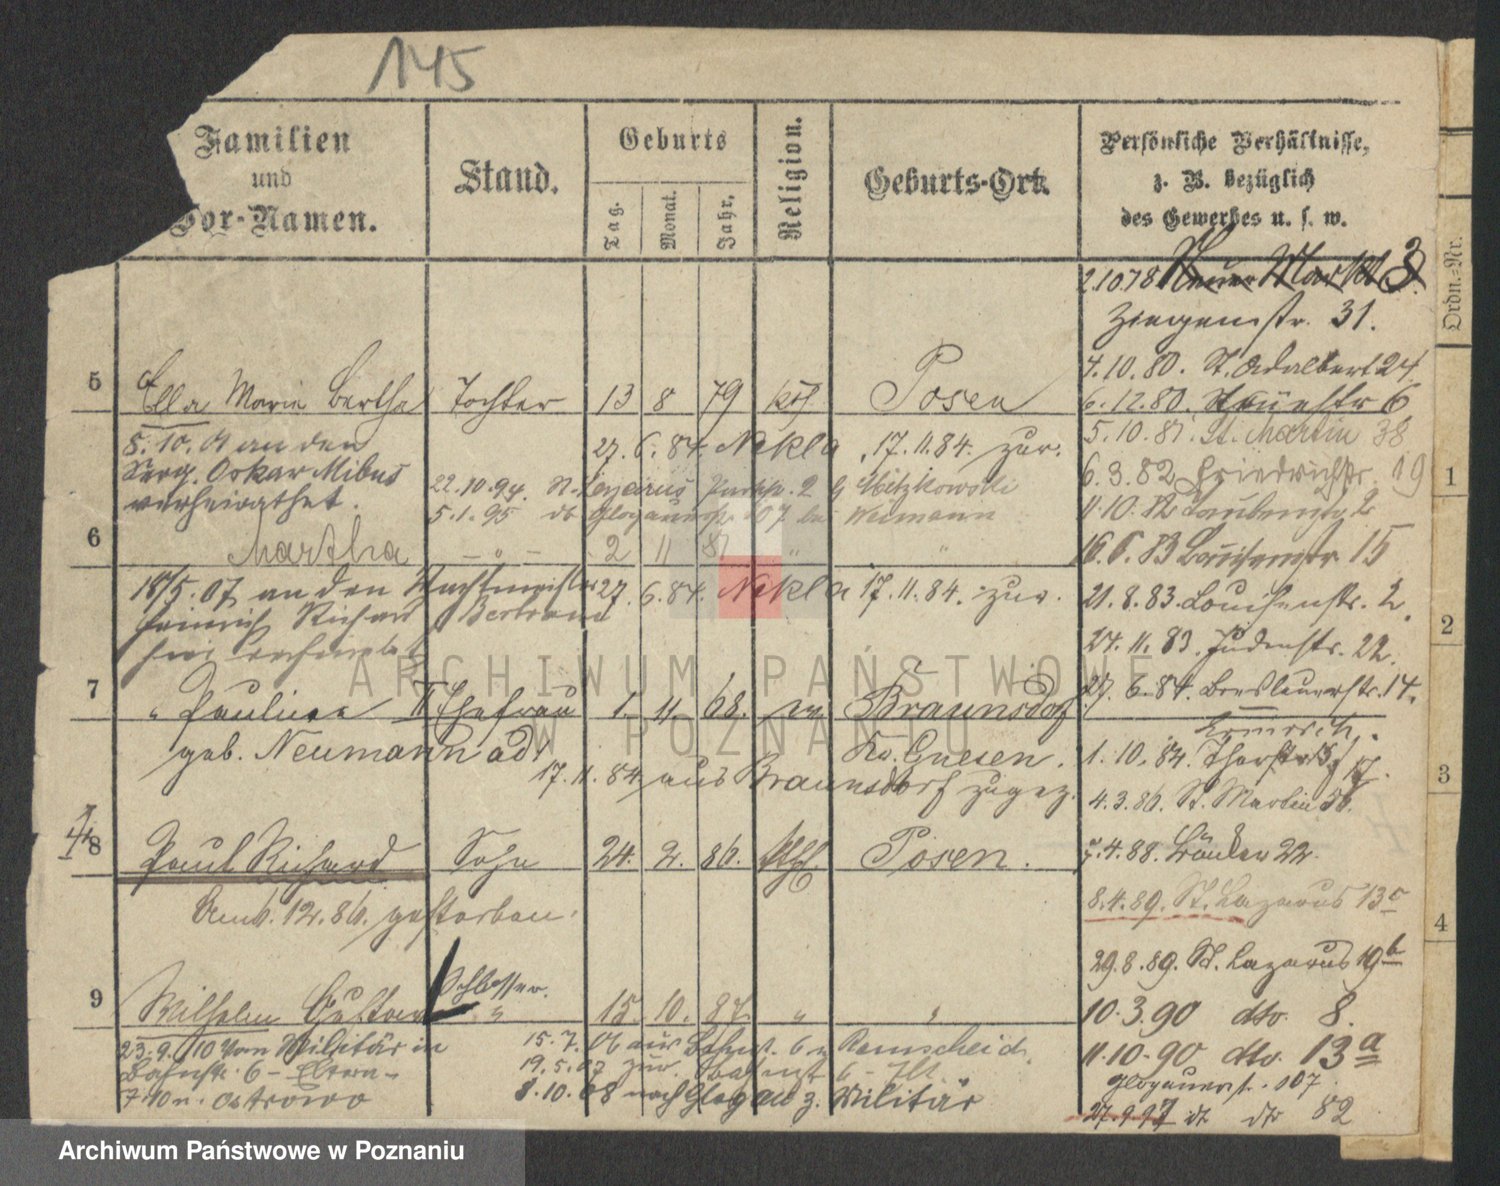 145
Familien
und
Vor-Namen.
Stand.
Geburts
Tag.
Monat.
Jahr.
Religion.
Geburts-Ort.
Persönliche Verhältnisse,
z. B. bezüglich
des Gewerbes u. s. w.
2.10.78 Neuer Markt 3
Ziegenstr. 31.
4.10.80. St. Adalbert 24
5 Ella Marie Bertha Tochter 13 8 79 kth Posen
6.12.80. 6
5.10.81. St. Martin 38
8.10.01 an den
Serg. Oskar Mibus
verheirathet.
27.6.84. Nekla 17.11.84. zur.
6.3.82 Friedrichstr. 19
22.10.94. St. Lazarus 2 b Mitzkowski
5.1.95 do Glogauerstr 107 bei Weimann
6 Martha " 2 11 81 " "
16.6.83 15
18/5.07 an den Wachtmeister
Heinrich Richard Bertrand
27.6.84. Nekla 17.11.84. zur.
21.8.83. Louisenstr. 2.
27.11.83. Judenstr. 22.
7 Pauline II Ehefrau 1. 11. 68. ev Braunsdorf
27.6.84. Breslauerstr. 14.
geb. Neumann ad 1
Kr. Gnesen.
17.11.84 aus Braunsdorf zugez.
1.10.84. 17.
4.3.86. St. Martin 56.
8 Paul Richard Sohn 24. 2. 86. kth. Posen.
4.88. 22.
Am 6.12.86. gestorben.
8.4.89. St. Lazarus 13c
29.8.89. St. Lazarus 19b
9 Wilhelm Gustav Schlosser. " 15. 10. 87. " "
10.3.90 dto. 8.
23.9.10 vom Militär in
Bahnstr. 6 - Eltern -
7.10 n. Ostrowo
15.7.06 aus Bahnst. 6 n Remscheid.
19.5.07 zur. Bahnst 6 -
8.10.08 nach Glogau z. Militär
11.10.90 dto. 13a
Glogauerst. 107
27.9.97 dt dto 82
Ordn.-Nr.
1
2
3
4
ARCHIWUM PAŃSTWOWE
W POZNANIU
Archiwum Państwowe w Poznaniu